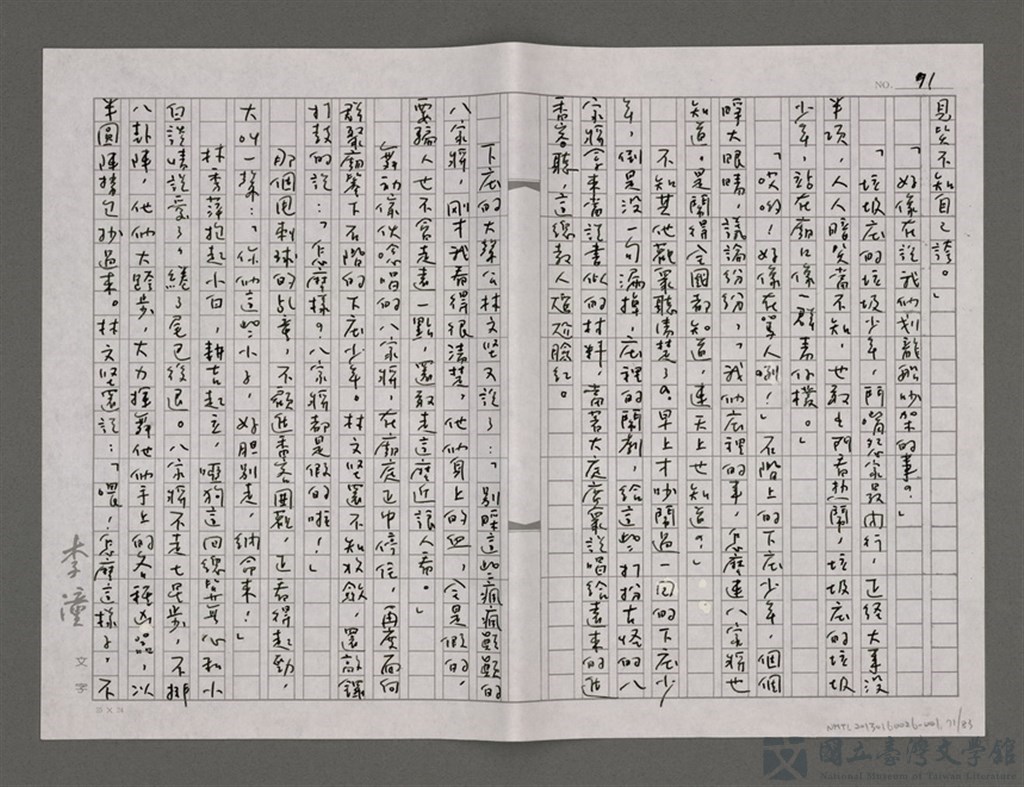 NO. 71
見笑不知自己誇。」
「好像在說我们划龍船吵架的事?」
「垃圾庄的垃圾少年,門嘴怨家最內行,正経大事没
半項,人人暗笑當不知,也敢出門看热鬧,垃圾庄的垃圾
少年,站在廟口像一群青仔欉。」
「哎喲!好像在罵人咧!」石階上的下庄少年,個個
睜大眼睛,議論纷纷,「我们庄裡的事,怎麼連八家將也
知道,是鬧得全國都知道,連天上也知道?」
不知其他觀眾聽清楚了?早上才吵鬧過一回的下庄少
年,倒是没一句漏掉,庄裡的鬧劇,給這些打扮古怪的八
家將拿來當說書似的材料,當著大庭廣眾說唱給遠來的進
香客聽,這總教人尷尬臉红。
下庄的大聲公林文堅又說了:「别睬這些瘋瘋顛顛的
八家將,剛才我看得很清楚,他们身上的血,全是假的,
要騙人也不會走遠一點,還敢走這麼近讓人看。」
舞动傢伙念唱的八家將,在廟庭正中停住,再度面向
群聚廟簷下石階的下庄少年。林文堅還不知收歛,還敲鑼
打鼓的說:「怎麼樣?八家將都是假的啦!」
那個甩刺球的乩童,不顧進香客圍觀,正看得起勁,
大叫一聲:「你们這些小子,好胆别走,纳命來!」
林秀萍抱起小白,耕古起立,啞狗這回總算真心和小
白談情說爱了,繞了尾巴後退。八家將不走七星步,不排
八卦陣,他们大跨步,大力揮舞他们手上的各種凶器,以
半圓陣势包抄過來。林文堅還說:「喂!怎麼這樣子,不
李潼
文字
25 × 24
NMTL20130160026-001, 71/83
國立臺灣文學館
National Museum of Taiwan Literature